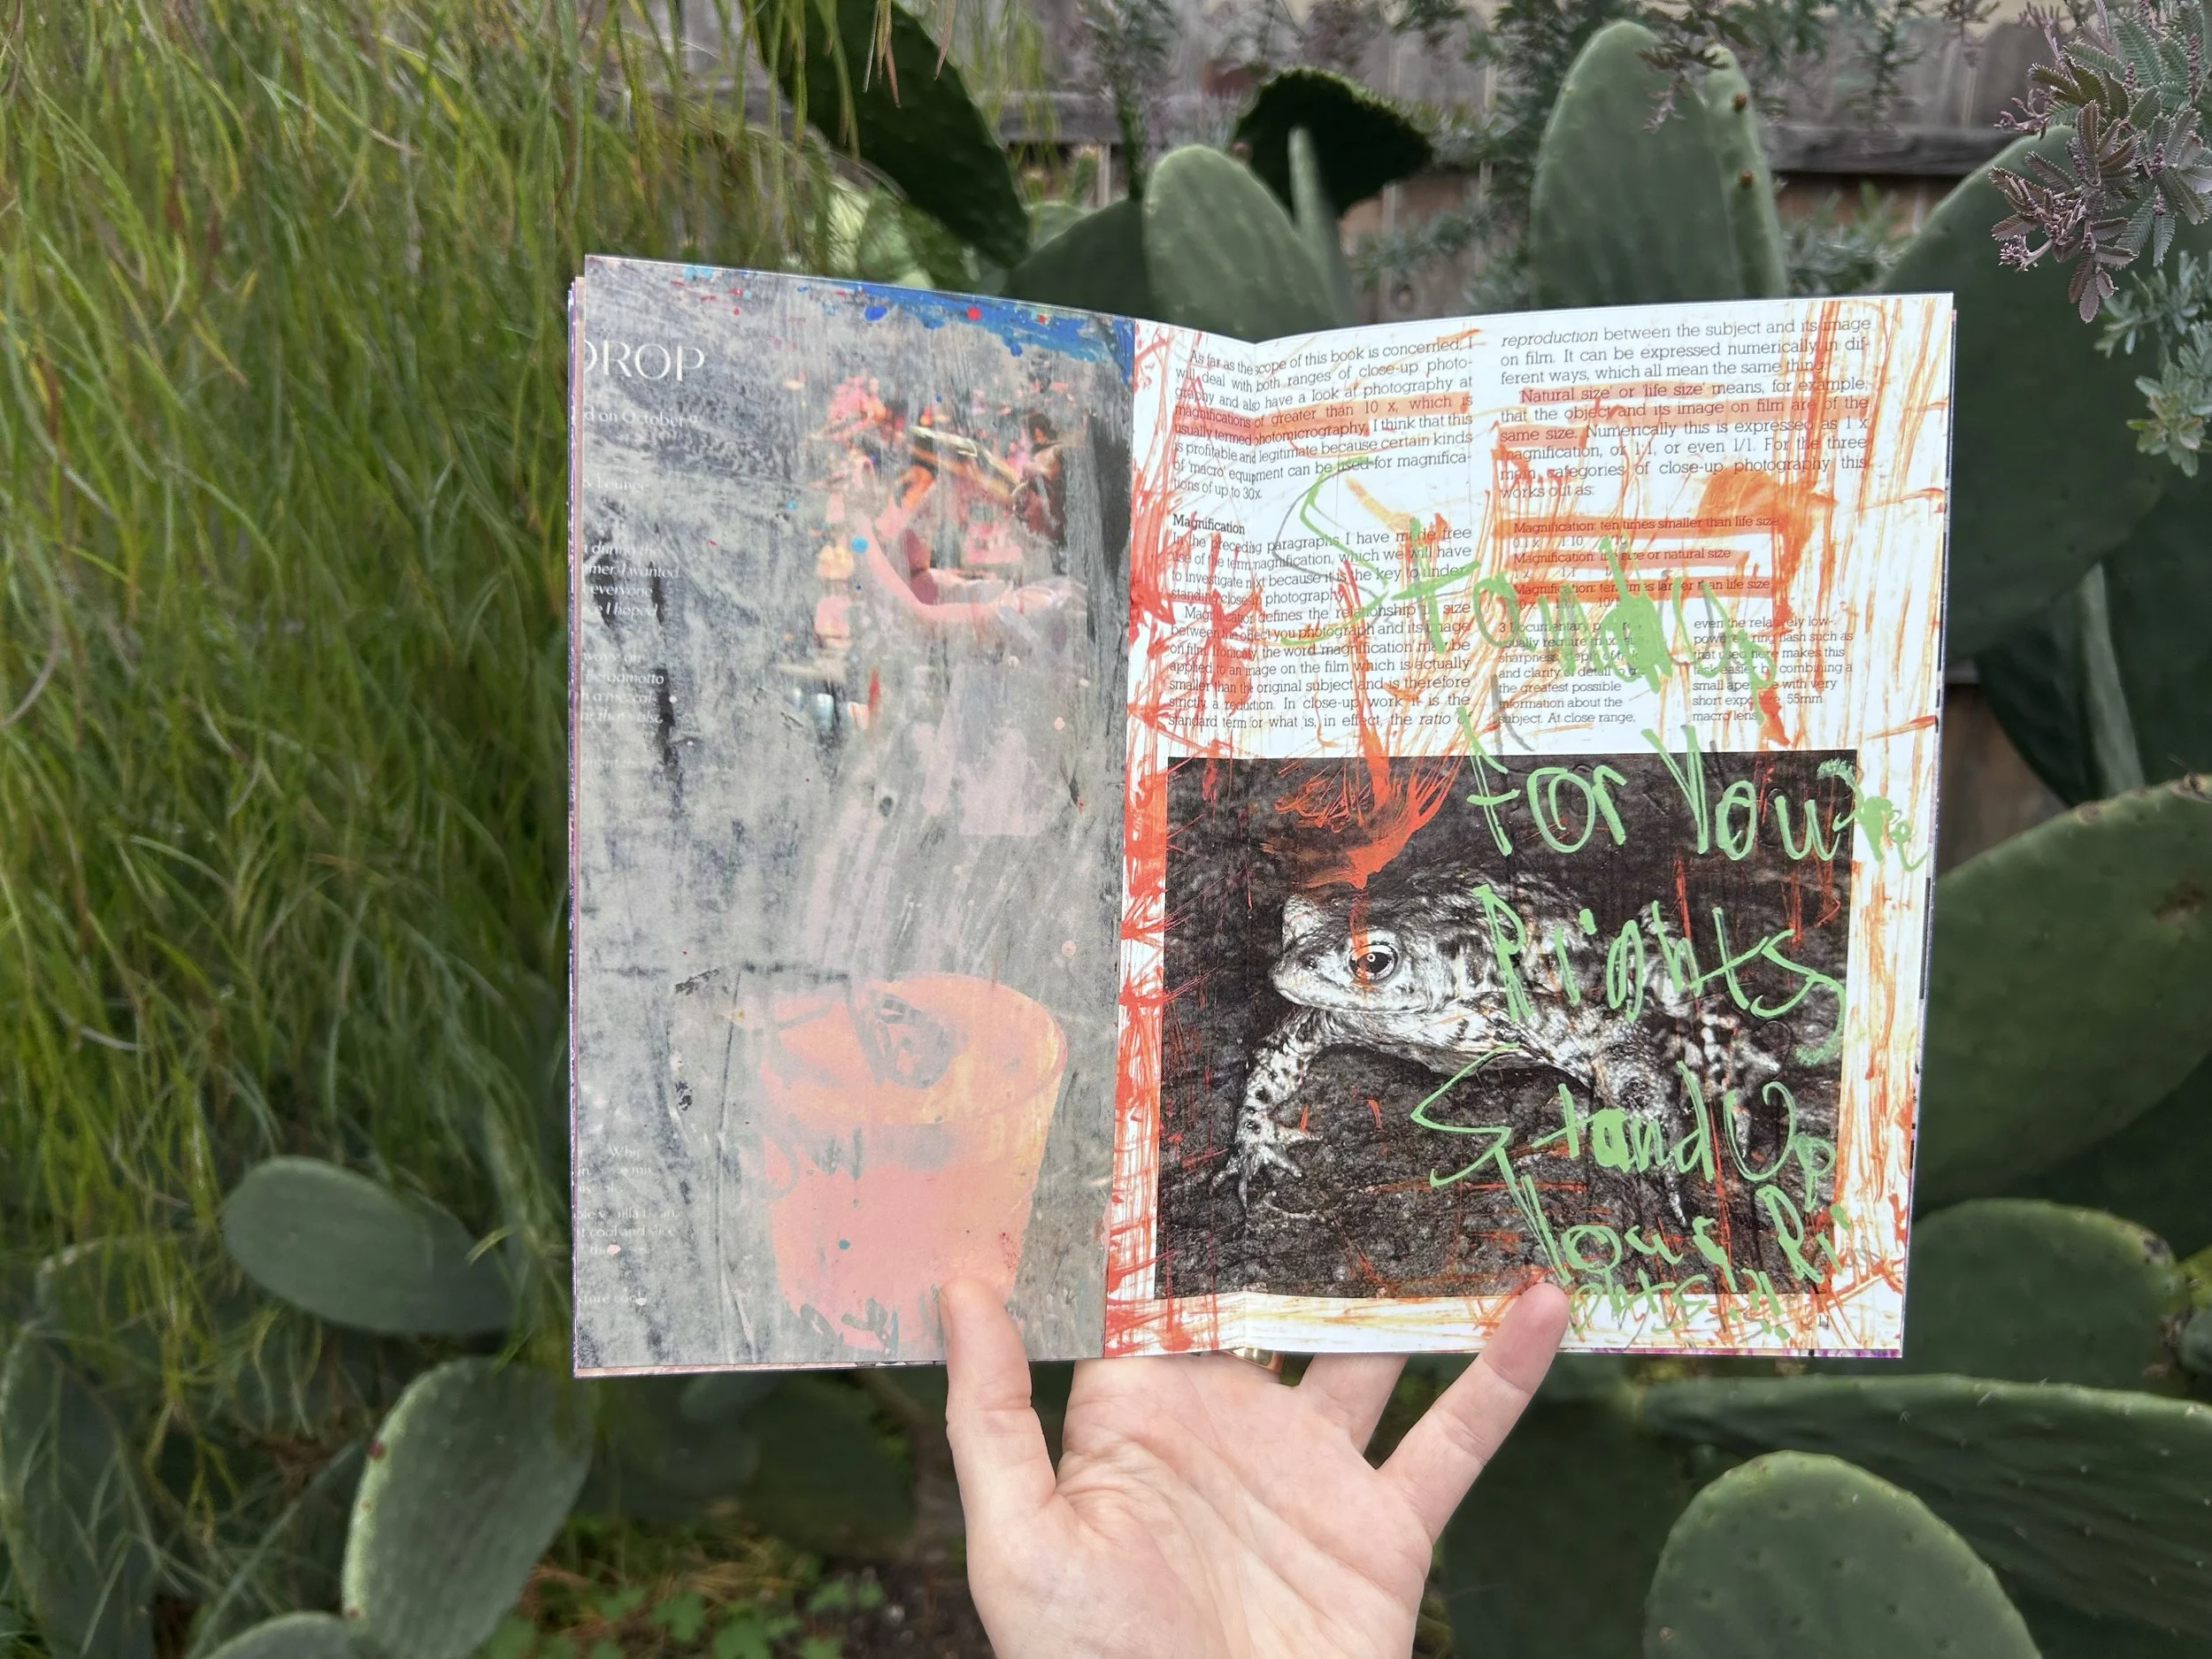 DROP
d on October 9
& Lounge
mer I wanted
everyone
ce I hoped
Bergamotto
Whip
cool and slice
As far as the scope of this book is concerned, I
will deal with both ranges of close-up photo-
graphy and also have a look at photography at
magnifications of greater than 10 x, which is
usually termed photomicrography. I think that this
is profitable and legitimate because certain kinds
of 'macro' equipment can be used for magnifica-
tions of up to 30x.
Magnification
In the preceding paragraphs I have made free
use of the term magnification, which we will have
to investigate next because it is the key to under-
standing close-up photography.
Magnification defines the relationship in size
between the object you photograph and its image
on film. Ironically, the word 'magnification' may be
applied to an image on the film which is actually
smaller than the original subject and is therefore
strictly a reduction. In close-up work it is the
standard term for what is, in effect, the ratio of
reproduction between the subject and its image
on film. It can be expressed numerically in dif-
ferent ways, which all mean the same thing.
'Natural size' or 'life size' means, for example,
that the object and its image on film are of the
same size. Numerically this is expressed as 1 x
magnification, or 1:1, or even 1/1. For the three
main categories of close-up photography this
works out as:
Magnification: ten times smaller than life size
0.1 x 1:10 1/10
Magnification: life size or natural size
1 x 1:1
Magnification: ten times larger than life size
3 Documentary
usually require max
sharpness, depth of
and clarity of detail
the greatest possible
information about the
subject. At close range,
even the relatively low-
powered ring flash such as
that used here makes this
task easier by combining a
small aperture with very
short exposure. 55mm
macro lens
Stand Up
for You're
Rights
Stand Up
Your Ri
ghts